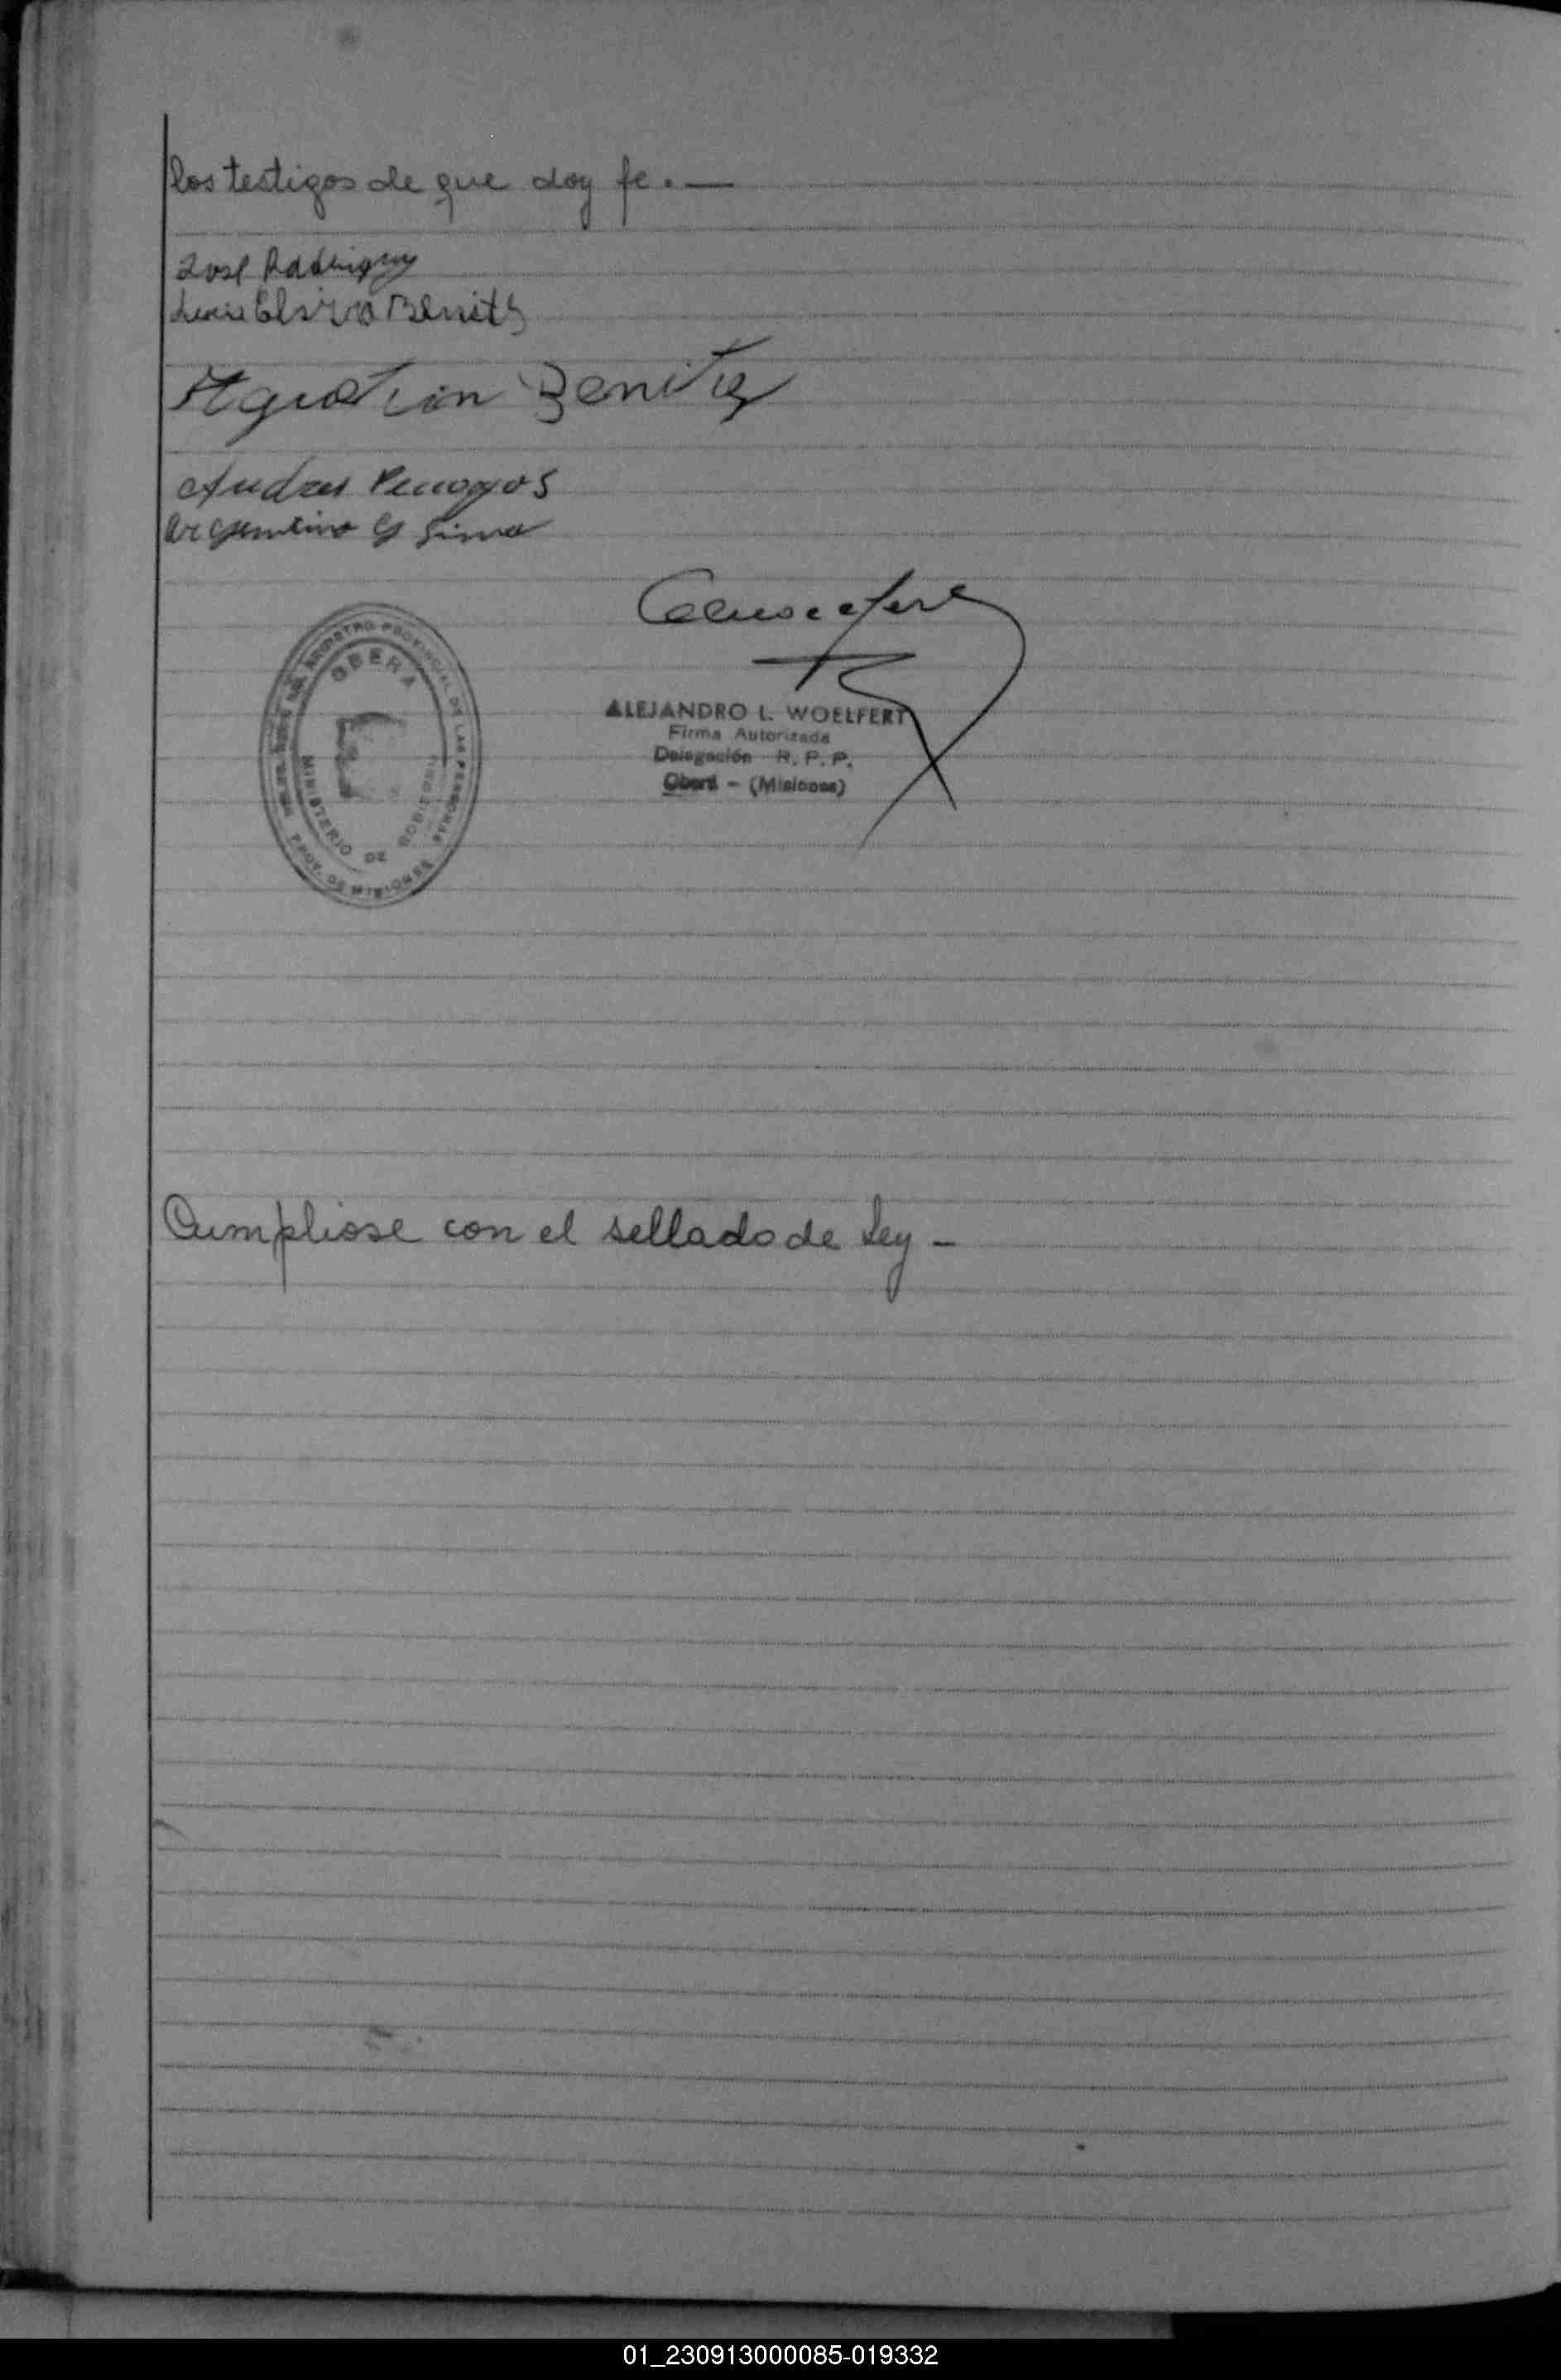 los testigos de que doy fe. —
José Rodriguez
Luis Elsira Benitz
Agustin Benitez
Andres
Argentino G Sima
REGISTRO PROVINCIAL DE LAS PERSONAS
OBERA
MINISTERIO DE GOBIERNO
PROV. DE MISIONES
ALEJANDRO L. WOELFERT
Firma Autorizada
Delegación R. P. P.
Oberá - (Misiones)
Cumpliose con el sellado de Ley -
01_230913000085-019332